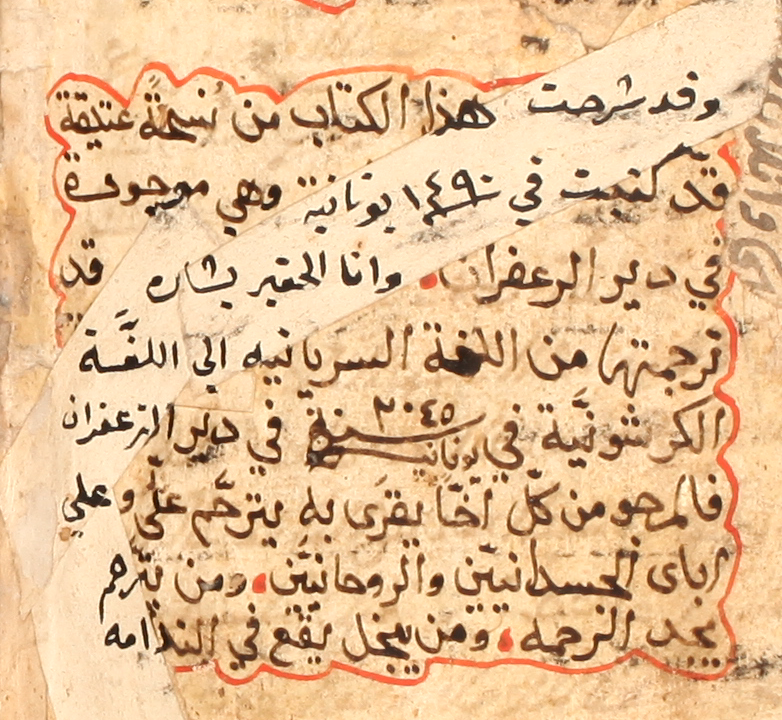 وقد شرحت هذا الكتاب من نسخةً عتيقة
قد كتبت في ١٤٩٠ يونانية وهي موجودة
في دير الزعفران. وانا الحقير بشاره قد
ترجمتها من اللغة السريانيه الى اللغَّة
الكرشونيَّة في سنة ٢٠٤٥ يونانية في دير الزعفران
فالمرجو من كلّ اخّاً يقرى به يترحَّم عليَّ وعلي
اباى الجسدانيّين والروحانيّين. ومن يترحم
يجد الرحمه. ومن يبخل يقع في الندامه